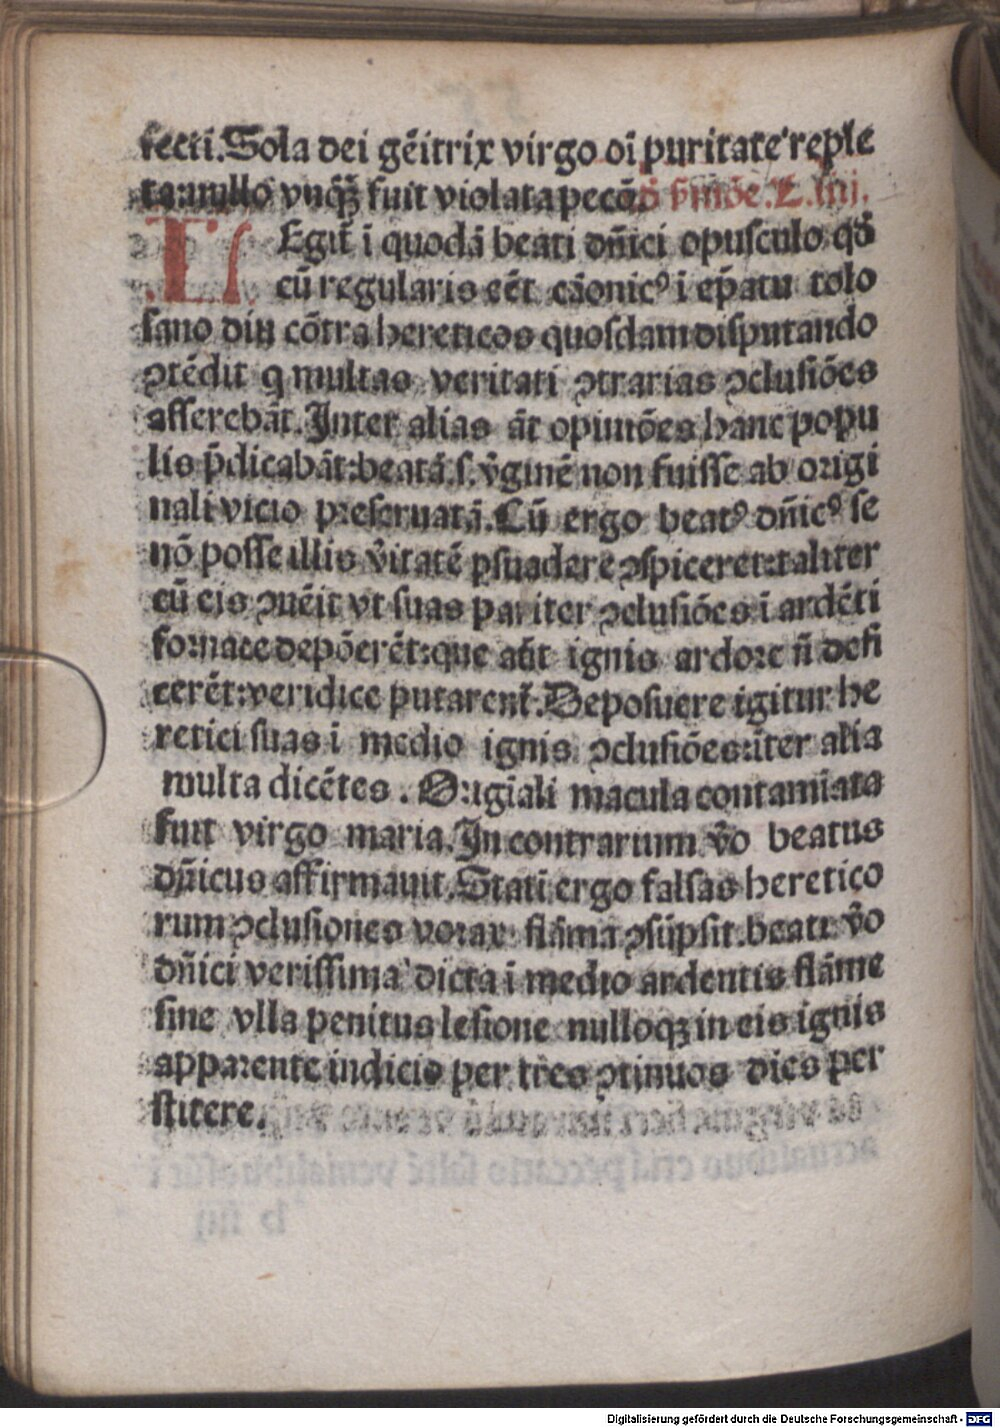 fecti. Sola dei gēitrix virgo oī puritate reple
ta: nullo vnq̄ꝫ fuit violata peccō.
L Egit̄ ī quodā beati dn̄ici opusculo qd̄
cū regularis eēt cāonicꝰ ī ep̄atu tolo
sano diu cōtra hereticos quosdam disputando
ꝯtēdit q multas veritati ꝯtrarias ꝯclusiōes
asserebāt. Inter alias āt opiniōes hanc popu
lis p̄dicabāt: beatā .s. v̄ginē non fuisse ab origi
nali vicio preseruatā. Cū ergo beatꝰ dn̄icꝰ se
nō posse illis v̄itatē ꝑsuadere ꝯspiceret: taliter
cū eis ꝯuēit vt suas pariter ꝯclusiōes ī ardēti
fornace depōerēt: que aūt ignis ardore n̄ defi
cerēt: veridice putarent̄. Deposuere igitur he
retici suas ī medio ignis ꝯclusiōes: īter alia
multa dicētes. Origīali macula contamīata
fuit virgo maria. In contrarium v̄o beatus
dn̄icus affirmauit. Statī ergo falsas heretico
rum ꝯclusiones vorax flāma ꝯsūpsit. beati v̄o
dn̄ici verissima dicta ī medio ardentis flāme
sine vlla penitus lesione nulloqꝫ in eis ignis
apparente indicio per tres ꝯtinuos dies per
stitere.
Digitalisierung gefördert durch die Deutsche Forschungsgemeinschaft - DFG